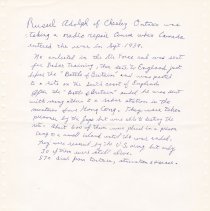 Russell Adolph of Chesley Ontario was
taking a radio repair course when Canada
entered the war in Sept. 1939.
He enlisted in the Air Force and was sent
for Radar Training. Then sent to England just
before the "Battle of Britain" and was posted
to a site on the south coast of England.
After the "Battle of Britain" ended he was sent
with many others to a radar station in the
of Hong Kong. They were taken
prisoner by the Japs
About 600 of them were placed in a prison
camp on a small island until the war ended.
They were rescued by the U.S. Navy but only
30 of them were still alive.
570 died from torture, starvation & disease.